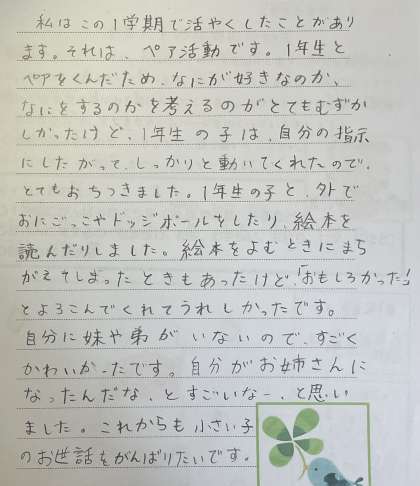 私はこの1学期で活やくしたことがあり
ます。それは、ペア活動です。1年生と
ペアをくんだため、なにが好きなのか、
なにをするのかを考えるのがとてもむずか
しかったけど、1年生の子は、自分の指示
にしたがって、しっかりと動いてくれたので、
とてもおちつきました。1年生の子と、外で
おにごっこやドッジボールをしたり、絵本を
読んだりしました。絵本をよむときにまち
がえてしまったときもあったけど、「おもしろかった!」
とよろこんでくれてうれしかったです。
自分に妹や弟がいないので、すごく
かわいかったです。自分がお姉さんに
なったんだな、とすごいなー、と思い
ました。これからも小さい子
のお世話をがんばりたいです。